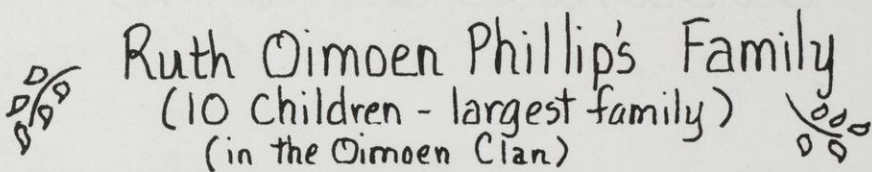 Ruth Oimoen Phillip's Family
(10 Children - largest family)
(in the Oimoen Clan)